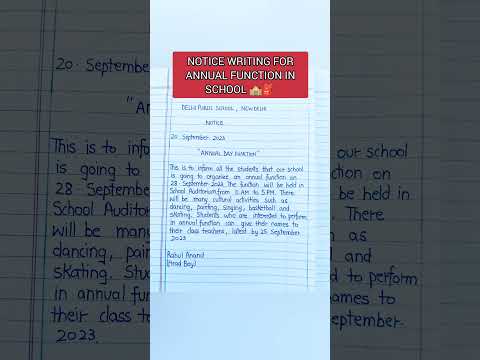 NOTICE WRITING FOR
ANNUAL FUNCTION IN
SCHOOL
DELHI PUBLIC SCHOOL, NEWDELHI
NOTICE
20 September 2023
"ANNUAL DAY FUNCTION"
This is to inform all the students that our school
is going to organise an annual function on
28 September 2023. The function will be held in
School Auditorium from 11 A.M to 5 P.M. There
will be many cultural activities such as
dancing, painting, singing, basketball and
skating. Students who are interested to perform
in annual function can give their names to
their class teachers, latest by 25 September
2023.
Rahul Anand
(Head Boy)